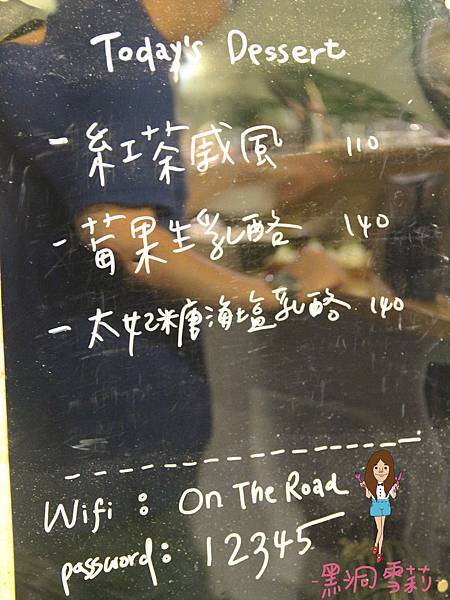 Today's Dessert
- 紅茶戚風 110
- 莓果生乳酪 140
- 太妃糖海塩乳酪 140
Wifi : On The Road
password: 12345
-黑洞雪莉-